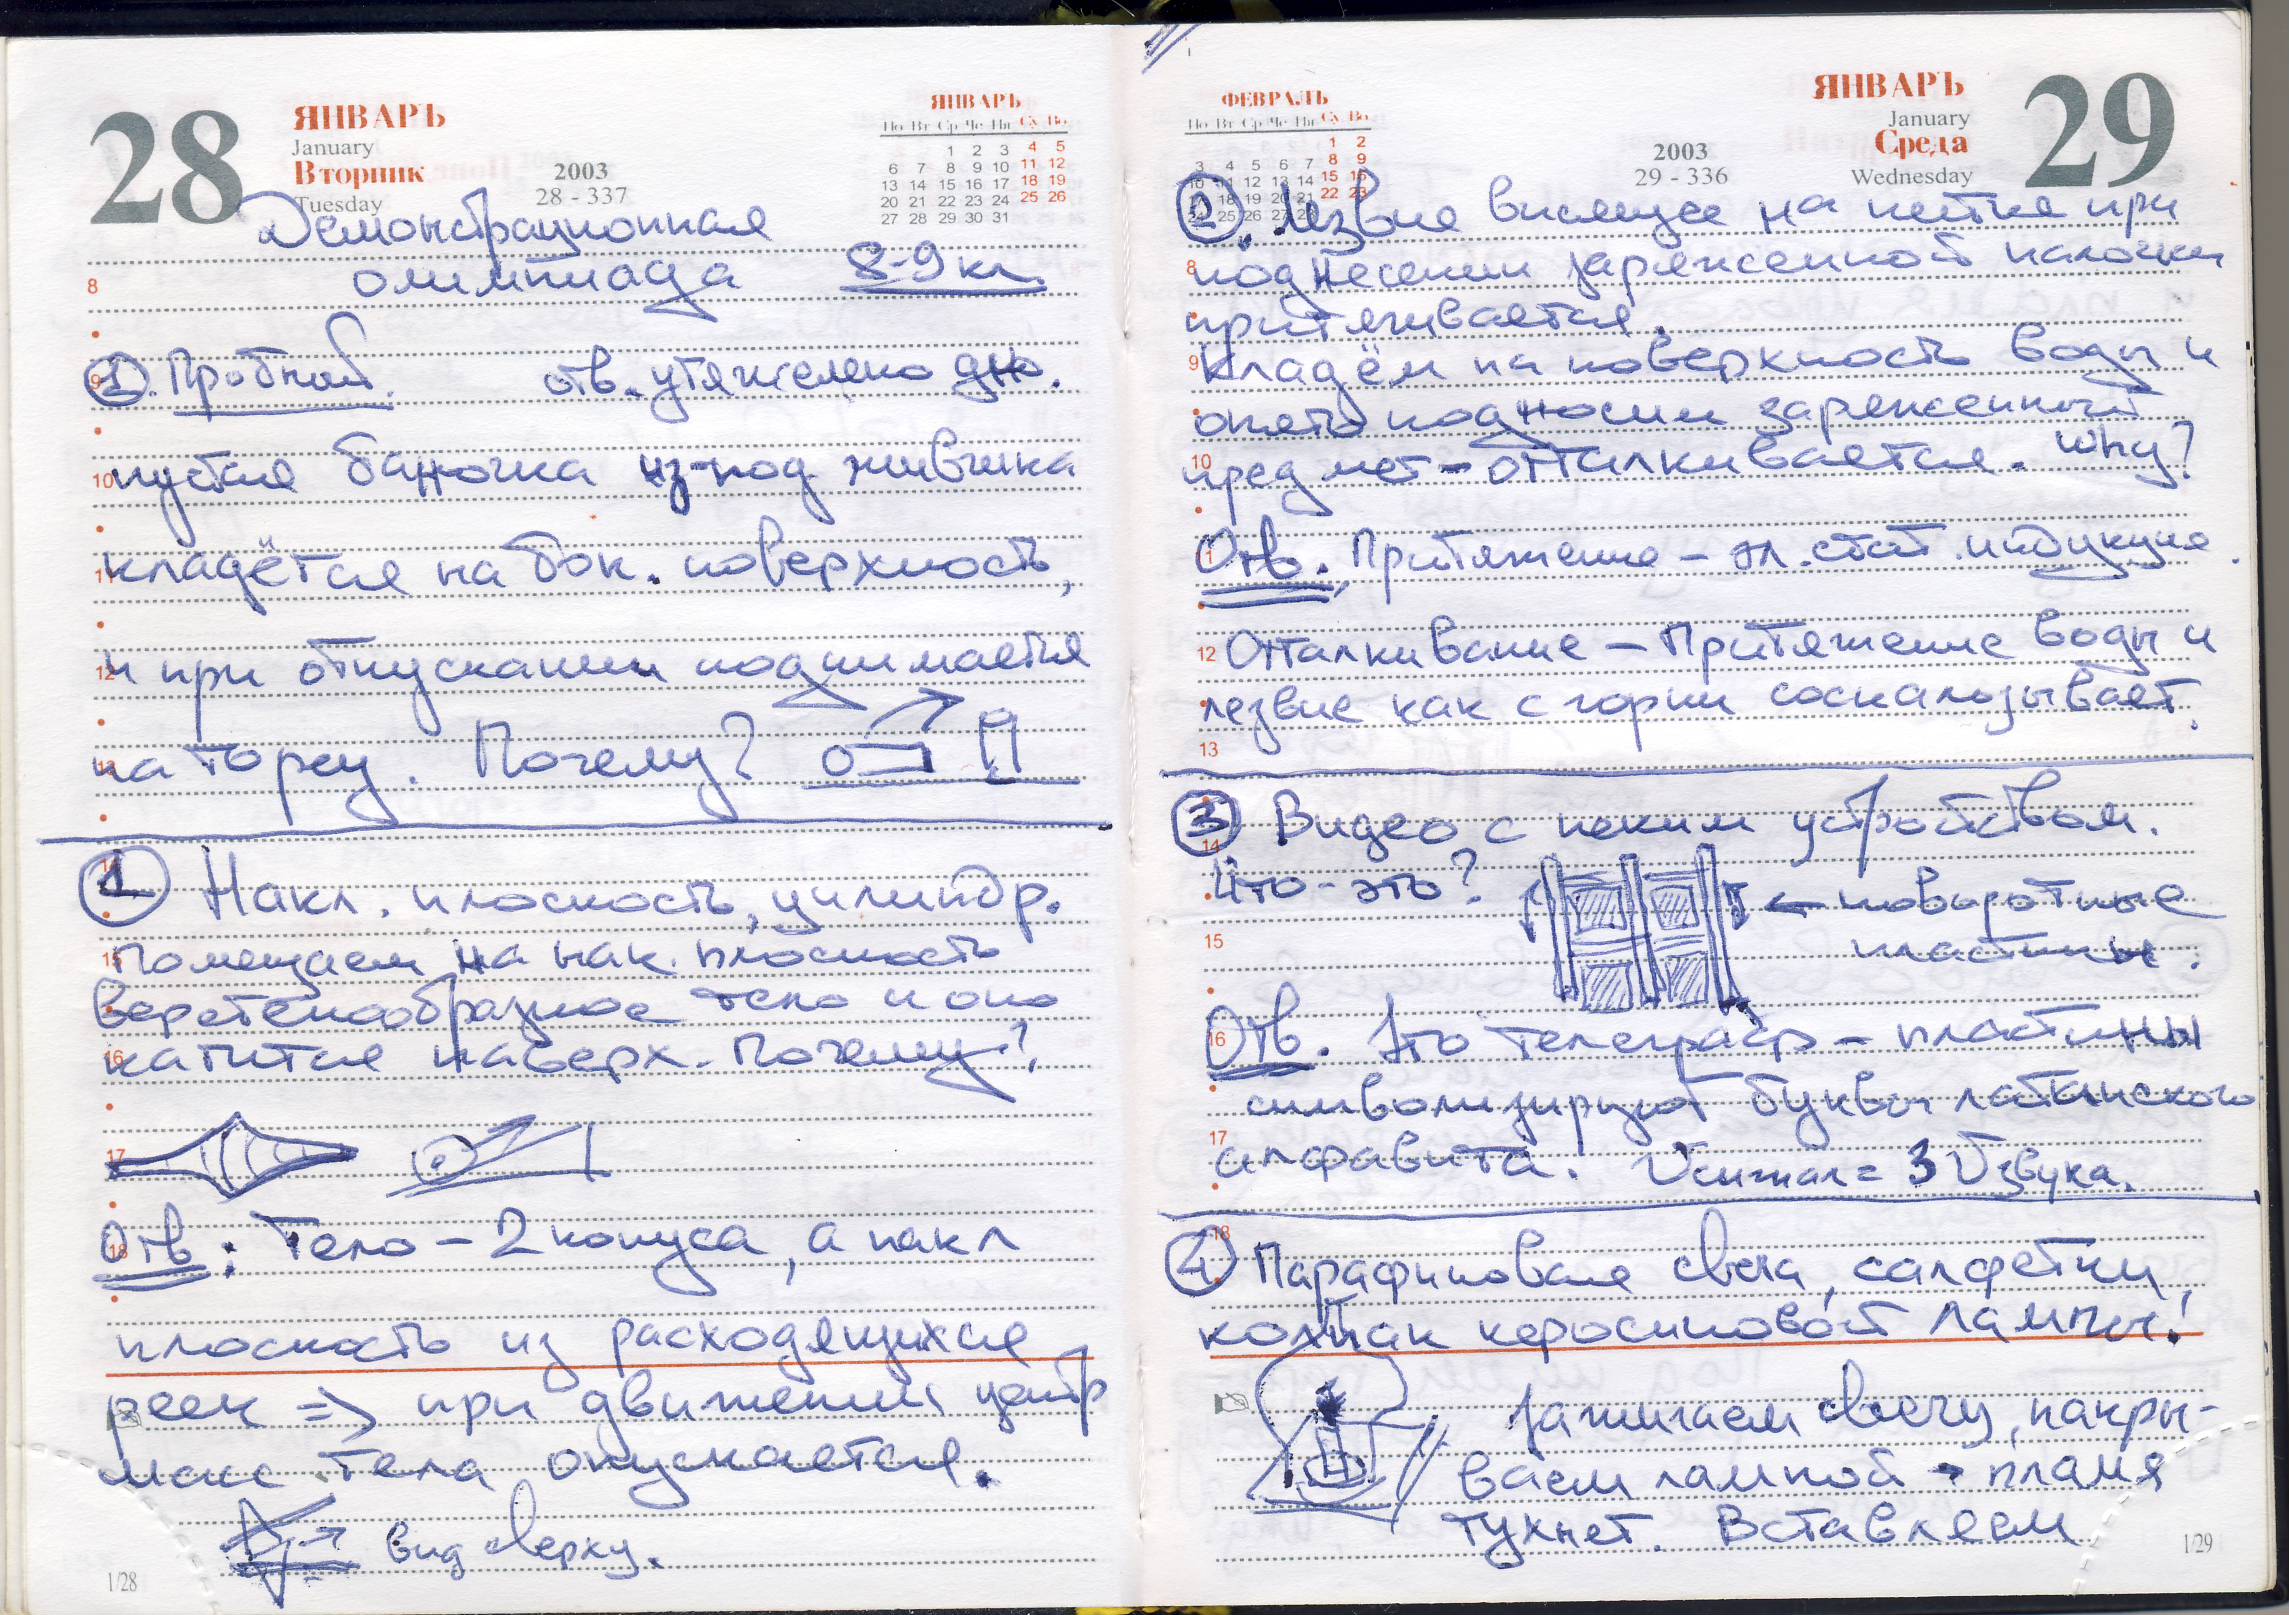 28
ЯНВАРЬ
January
Вторник
Tuesday
2003
28 - 337
ЯНВАРЬ
По Вт Ср Че Пя Су Во
1 2 3 4 5
6 7 8 9 10 11 12
13 14 15 16 17 18 19
20 21 22 23 24 25 26
27 28 29 30 31
Демонстрационная
олимпиада 8-9 кл
1. Пробной. отв. утяжелено дно.
пустая баночка из-под живчика
кладётся на бок. поверхность,
и при отпускании поднимается
на торец. Почему?
1 Накл. плоскость, цилиндр.
Помещаем на нак. плоскость
веретенообразное тело и оно
катится наверх. Почему?
Отв: Тело – 2 конуса, а накл
плоскость из расходящихся
реек => при движении центр
масс тела опускается.
вид сверху.
1/28
ФЕВРАЛЬ
По Вт Ср Че Пя Су Во
1 2
3 4 5 6 7 8 9
10 11 12 13 14 15 16
17 18 19 20 21 22 23
24 25 26 27 28
2003
29 - 336
ЯНВАРЬ
January
Среда
Wednesday
29
2. Лезвие висящее на нитке при
поднесении заряженной палочки
притягивается.
Кладём на поверхность воды и
опять подносим заряженный
предмет – отталкивается. Why?
Отв. Притяжение – эл. стат. индукция.
Отталкивание – Притяжение воды и
лезвие как с горки соскальзывает.
3 Видео с неким устройством.
Что-это? ← поворотные
пластины.
Отв. Это телеграф – пластины
символизируют буквы латинского
алфавита. Vсигнал = 3 Vзвука.
4 Парафиновая свеча, салфетки,
колпак керосиновой лампы!
Зажигаем свечу, накры-
ваем лампой → пламя
тухнет. Вставляем
1/29